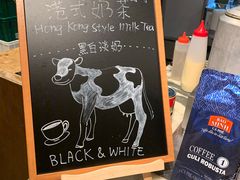 港式奶茶
Hong Kong Style Milk Tea
黑白淡奶
BLACK & WHITE
BẢO MINH
COFFEE
CULI ROBUSTA